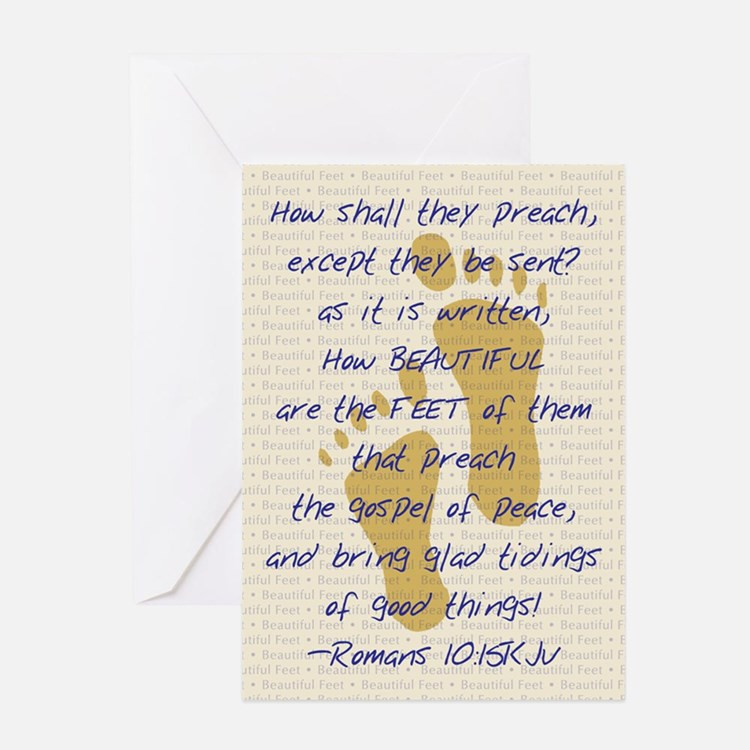 How shall they preach,
except they be sent?
as it is written,
How BEAUTIFUL
are the FEET of them
that preach
the gospel of peace,
and bring glad tidings
of good things!
—Romans 10:15KJV
Beautiful Feet • Beautiful Feet • Beautiful Feet